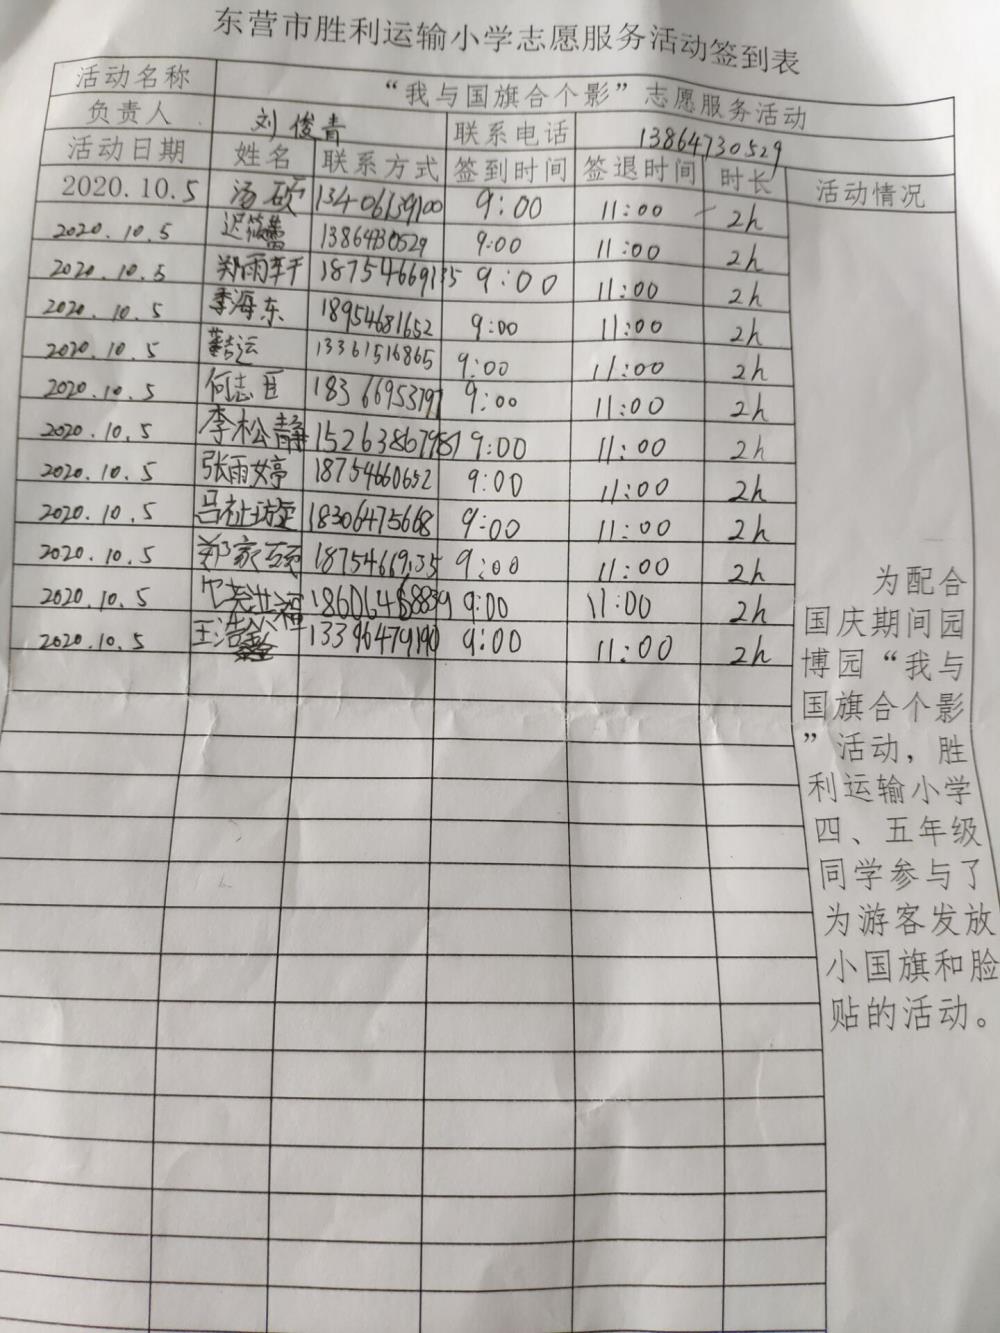 东营市胜利运输小学志愿服务活动签到表
活动名称 “我与国旗合个影”志愿服务活动
负责人 刘俊青 联系电话 13864730529
活动日期 姓名 联系方式 签到时间 签退时间 时长 活动情况
2020.10.5 汤硕 13406139100 9:00 11:00 2h
2020.10.5 迟筱蕾 1386430529 9:00 11:00 2h
2020.10.5 郑雨轩 18754669135 9:00 11:00 2h
2020.10.5 季海东 18954681652 9:00 11:00 2h
2020.10.5 13361516865 9:00 11:00 2h
2020.10.5 何志臣 18366953797 9:00 11:00 2h
2020.10.5 李松静 9:00 11:00 2h
2020.10.5 张雨婷 18754660652 9:00 11:00 2h
2020.10.5 18306475668 9:00 11:00 2h
2020.10.5 郑家硕 18754669135 9:00 11:00 2h
2020.10.5 9:00 11:00 2h
2020.10.5 王浩鑫 13396479190 9:00 11:00 2h
为配合
国庆期间园
博园“我与
国旗合个影
”活动，胜
利运输小学
四、五年级
同学参与了
为游客发放
小国旗和脸
贴的活动。